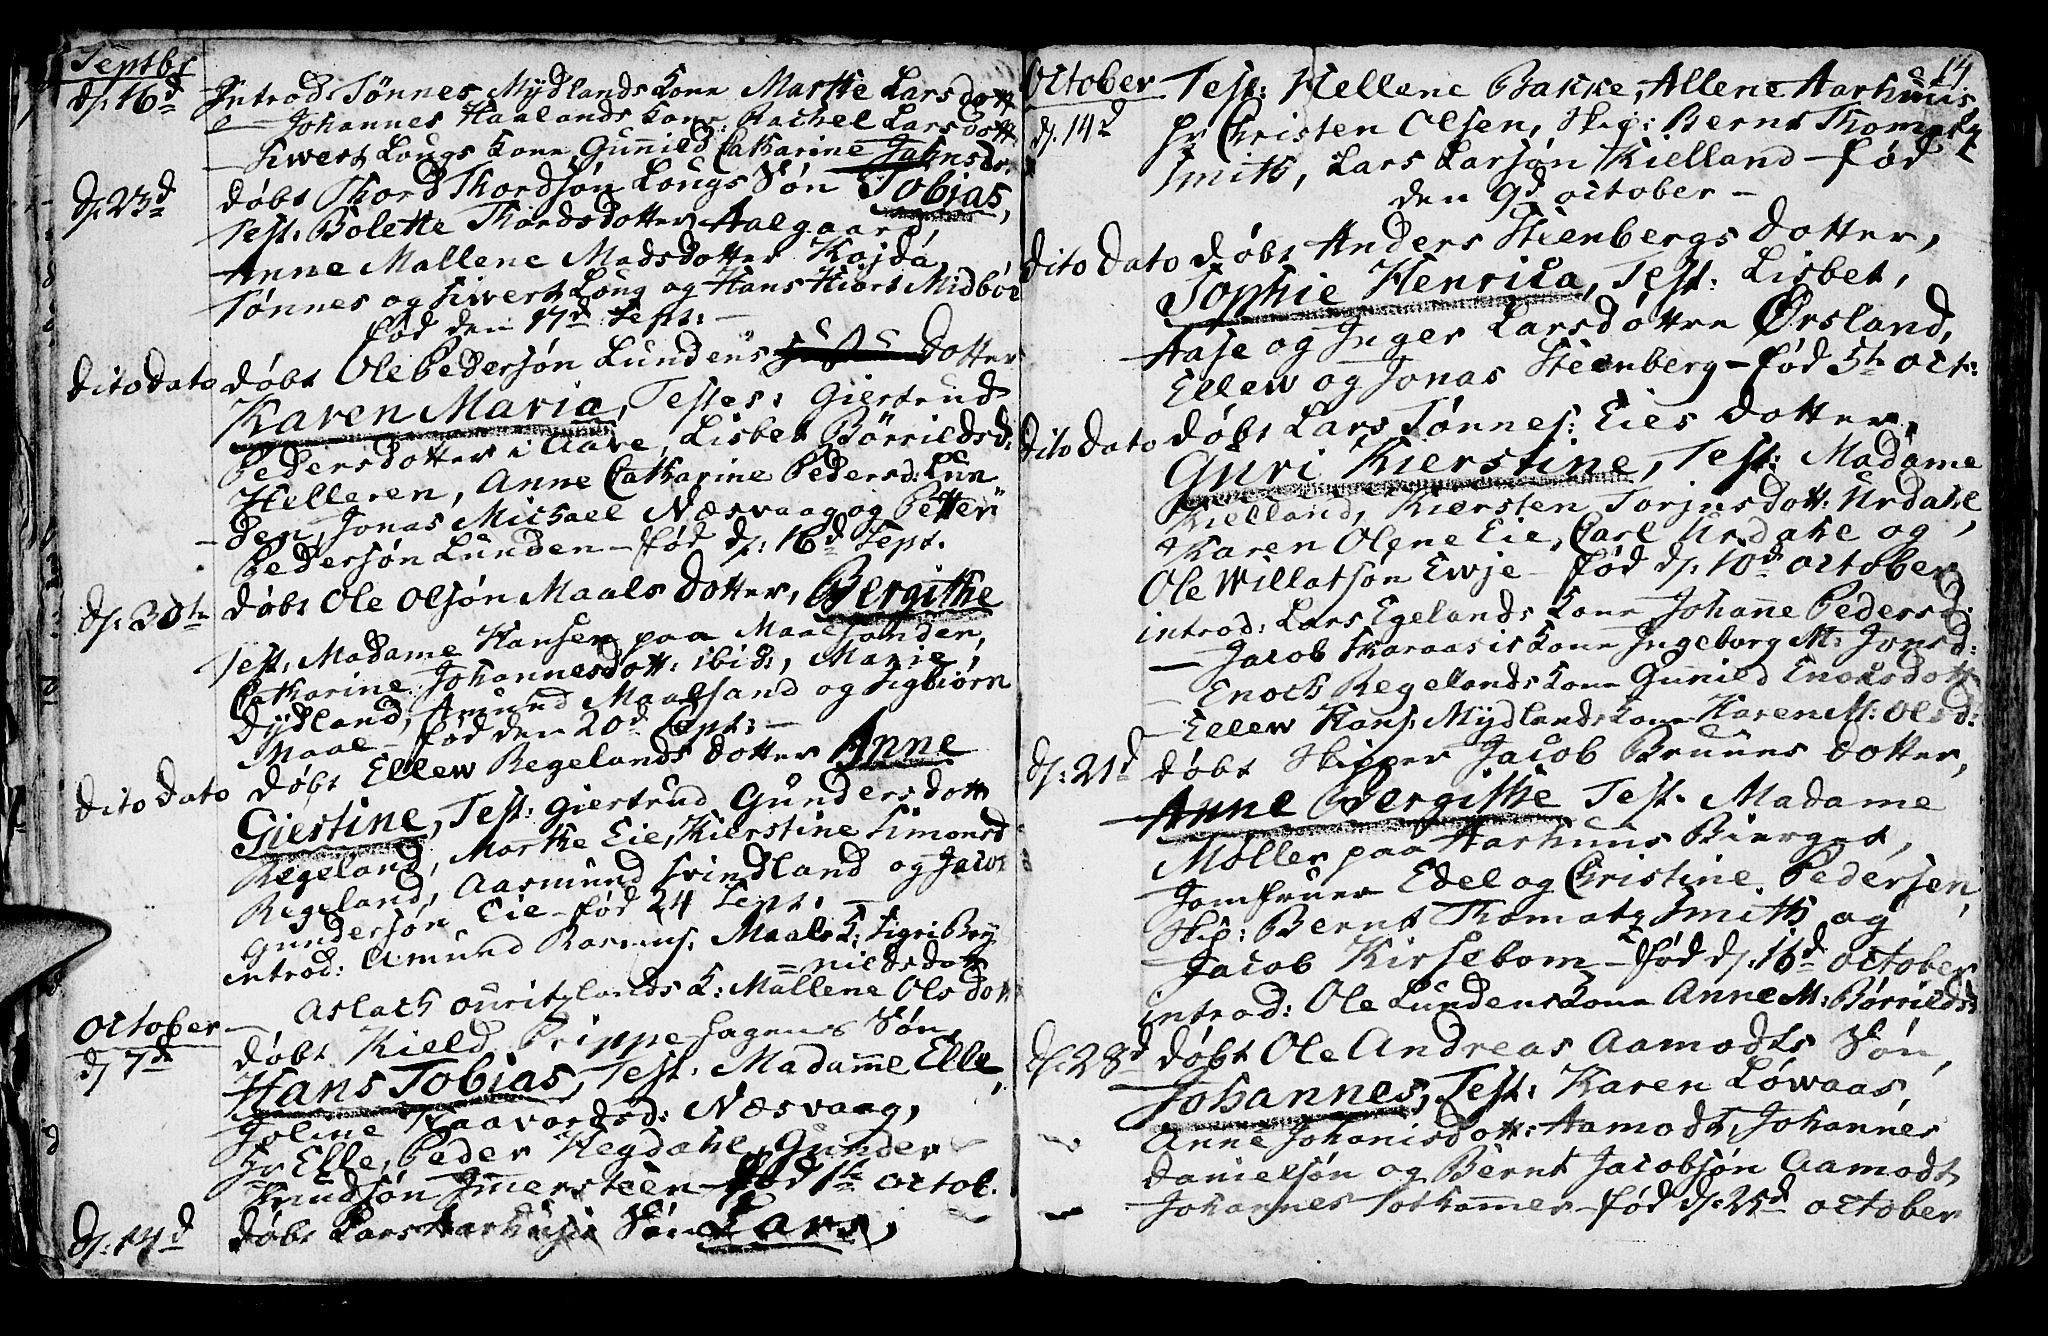 Septbr
d: 16d Introd. Tønnes Mydlands Kone Marthe Larsdott
— Johannes Haalands Kone Rachel Larsdott
— Siwert Lougs Kone Gunild Catharine Johnsdr.
d: 23d døbt Thord Thordsøn Lougs Søn Tobias,
Test: Bolette Thordsdotter Aalgaard,
Anne Mallene Madsdotter Kojda,
Tønnes og Siwert Loug og Hans Hiort Midbøe
fød den 17d Sept: —
dito dato døbt Ole Pedersøn Lundens Dotter
Karen Maria, Testes: Giertrud
Pedersdotter i Aave, Lisbet Börrildsd:
Helleren, Anne Catharine Pedersd: Lun
den, Jonas Michael Næsvaag og Petter
Pedersøn Lunden — fød d: 16d Sept.
d: 30te døbt Ole Olsøn Maals Dotter, Bergithe
Test: Madame Hansen paa Maalsanden,
Catharine Johannesdott: ibid:, Marie
Dydland, Amund Maalsand og Sigbiørn
Maal — fød den 20d Sept: —
dito dato døbt Ellew Regelands Dotter Anne
Giestine, Test: Giertrud Gundersdott
Regeland, Marthe Eie, Kierstine Simonsd
Regeland, Aasmund Svindland og Jacob
Gundersøn Eie — fød 24 Sept. —
introd: Amund Rasmus: Maals K: Sigri Bry
=nildsdott
— Aslach Ouritzlands K: Mallene Olsdott
October
d 7de døbt Kield Prippe Fagens Søn,
Hans Tobias, Test: Madame Elle,
Joline Haavordsd: Næsvaag,
Hr Elle, Peder Hegdahl, Gunder
Knudsøn Imersteen — fød 1te Octob.
d: 14d døbt Lars Aarhusis Søn Lars,
14
October Test: Hellene Bakke, Allene Aarhuus,
d. 14d Hr Christen Olsen, Skip: Bernt Thomatz
Smith, Lars Larsøn Kielland — fød
den 9d October —
dito dato døbt Anders Stienbergs Dotter,
Sophie Henrica, Test: Lisbet,
Aase og Inger Larsdøttre Ørsland,
Ellew og Jonas Steenberg — fød 5te Oct:
dito dato døbt Lars Tønnes: Eies Dotter,
Guri Kierstine, Test: Madame
Kielland, Kiersten Torjusdott: Urdahl,
Karen Olene Eie, Carl Urdahl og
Ole Willatsøn Ewje — fød d: 10d October
introd: Lars Egelands Kone Johanne Pedersd:
— Jacob Skaraasis Kone Ingeborg M: Jonsd:
— Enoch Regelands Kone Gunild Enoksdott
— Ellew Hans: Mydlands Kone Karen M: Olsd:
d: 21d døbt Skipper Jacob Bruuns Dotter,
Anne Bergithe Test. Madame
Møller paa Aarhuus Bierget,
Jomfruer Edel og Christine Pedersen,
Skip: Bernt Thomatz Smith og
Jacob Kirsebom — fød d: 16d October
introd: Ole Lundens Kone Anne M: Börrildsd
d: 28d døbt Ole Andreas Aamodts Søn,
Johannes, Test: Karen Løwaas,
Anne Johanisdott: Aamodt, Johannes
Danielsøn og Bernt Jacobsøn Aamodt
Johannes Sothammer — fød d: 25d October